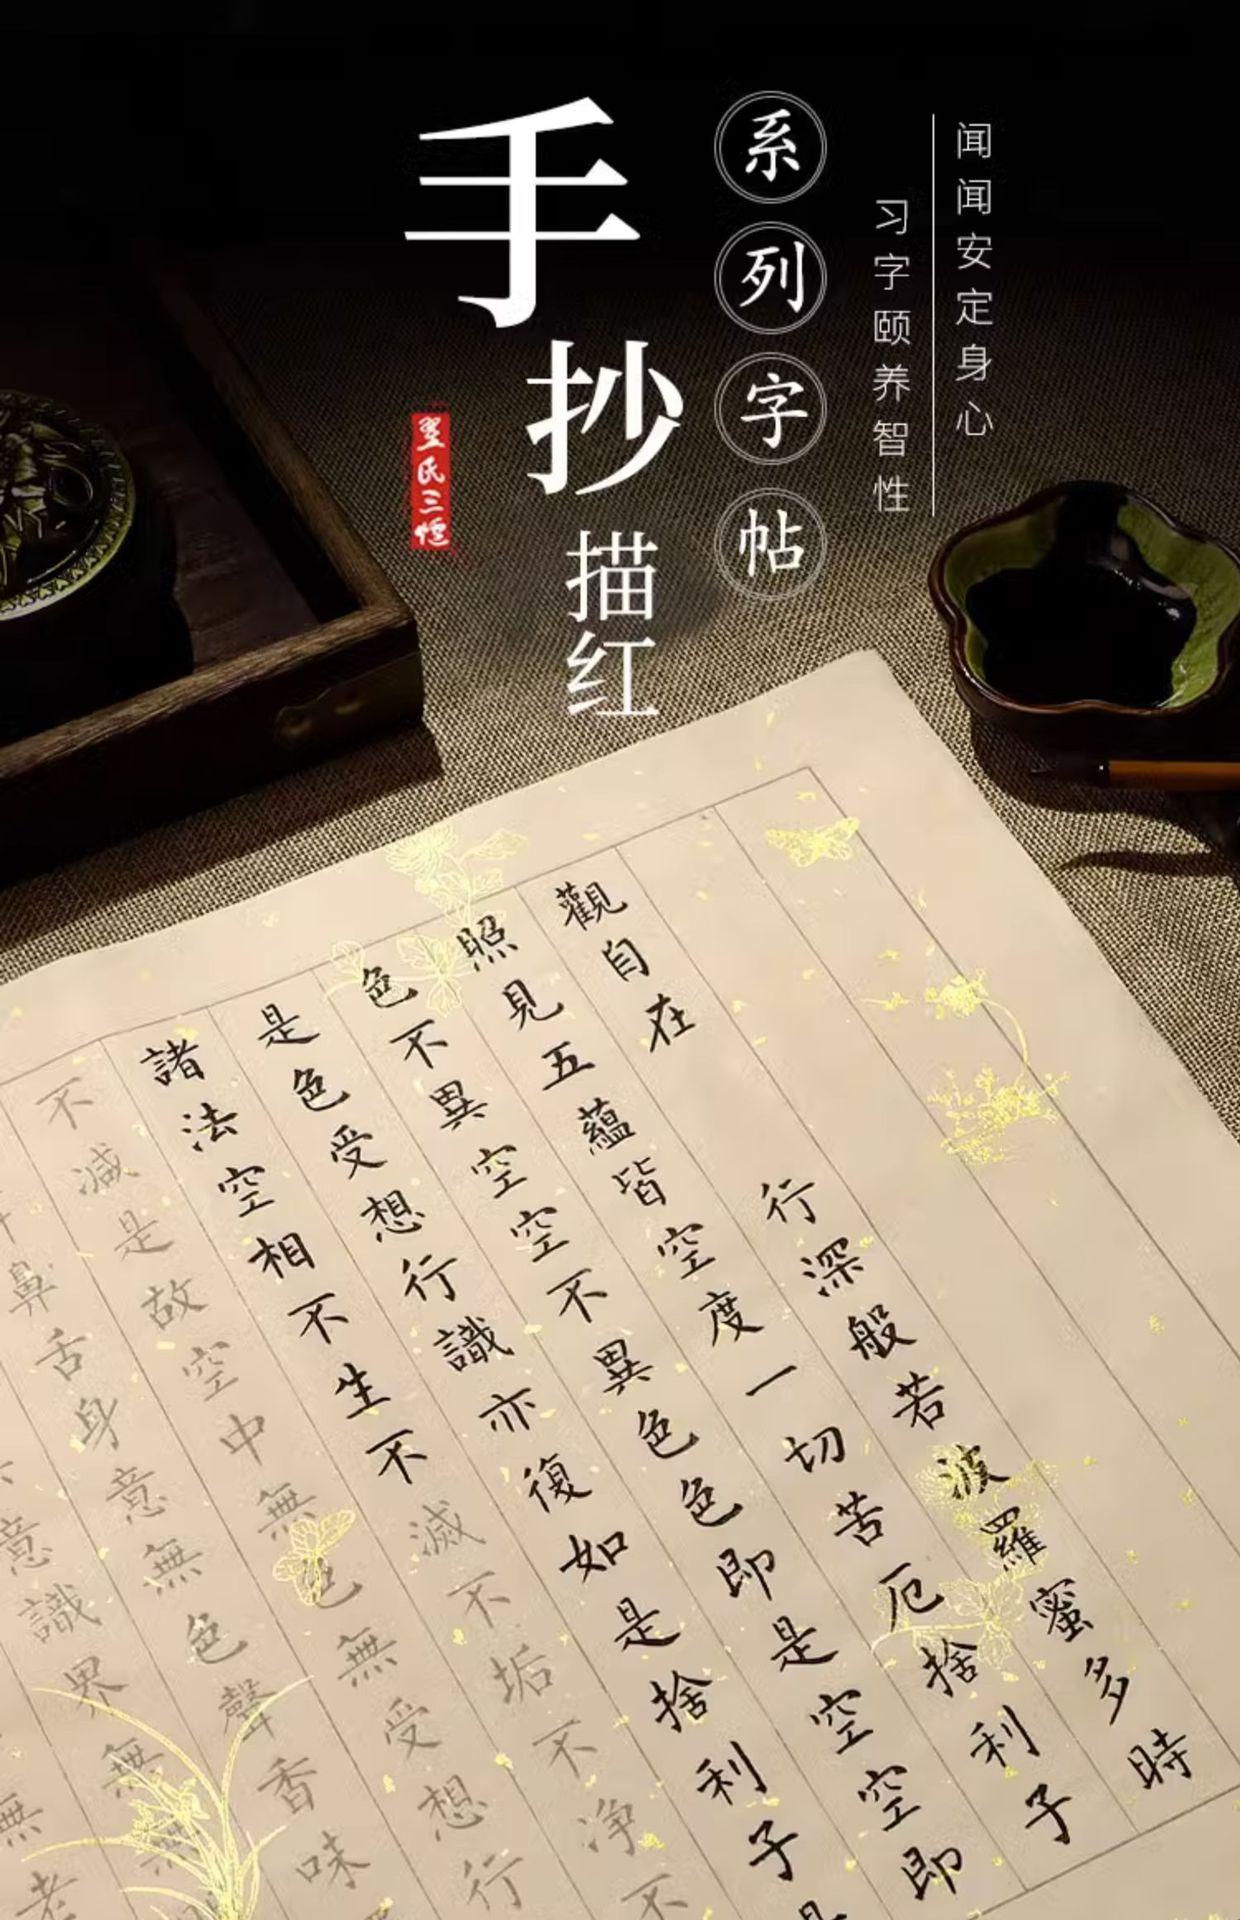 手抄描红
系列字帖
闻闻安定身心
习字颐养智性
觀自在 行深般若波羅蜜多時
照見五蘊皆空度一切苦厄捨利子
色不異空空不異色色即是空空即
是色受想行識亦復如是捨利子是
諸法空相不生不滅不垢不净不
不減是故空中無色無受想行
鼻舌身意無色聲香味
意識界無無
無老